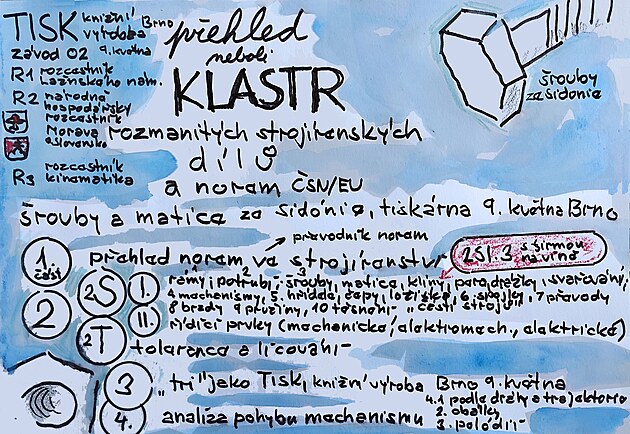 TISK knižní výroba Brno
závod 02 9. května
R1 rozcestník
Lázeňského nám.
R2 národně
hospodářský
rozcestník
Morava
a Slovensko
R3 rozcestník
kinematika
přehled
neboli
KLASTR
rozmanitých strojírenských
dílů
a norem ČSN/EU
šrouby
ze Sidonie
šrouby a matice ze Sidónie, tiskárna 9. května Brno
průvodník norem
1. část
přehled norem ve strojírenství
2SI.3 s firmou
na vrně
2
2S
I.
rámy, potrubí, šrouby, matice, klíny, pera, drážky, svařování,
4 mechanismy, 5. hřídele, čepy, ložiska, 6. spojky, 7 převody
8 brzdy 9 pružiny, 10 těsnění - "části strojů"
2T
II.
řídící prvky (mechanické, elektromech, elektrické)
tolerance a lícování
3
"tři" jako Tisk, knižní výroba Brno 9. května
4.
analíza pohybu mechanismu
4.1 podle dráhy a trajektorie
2. obálky
3. polodií